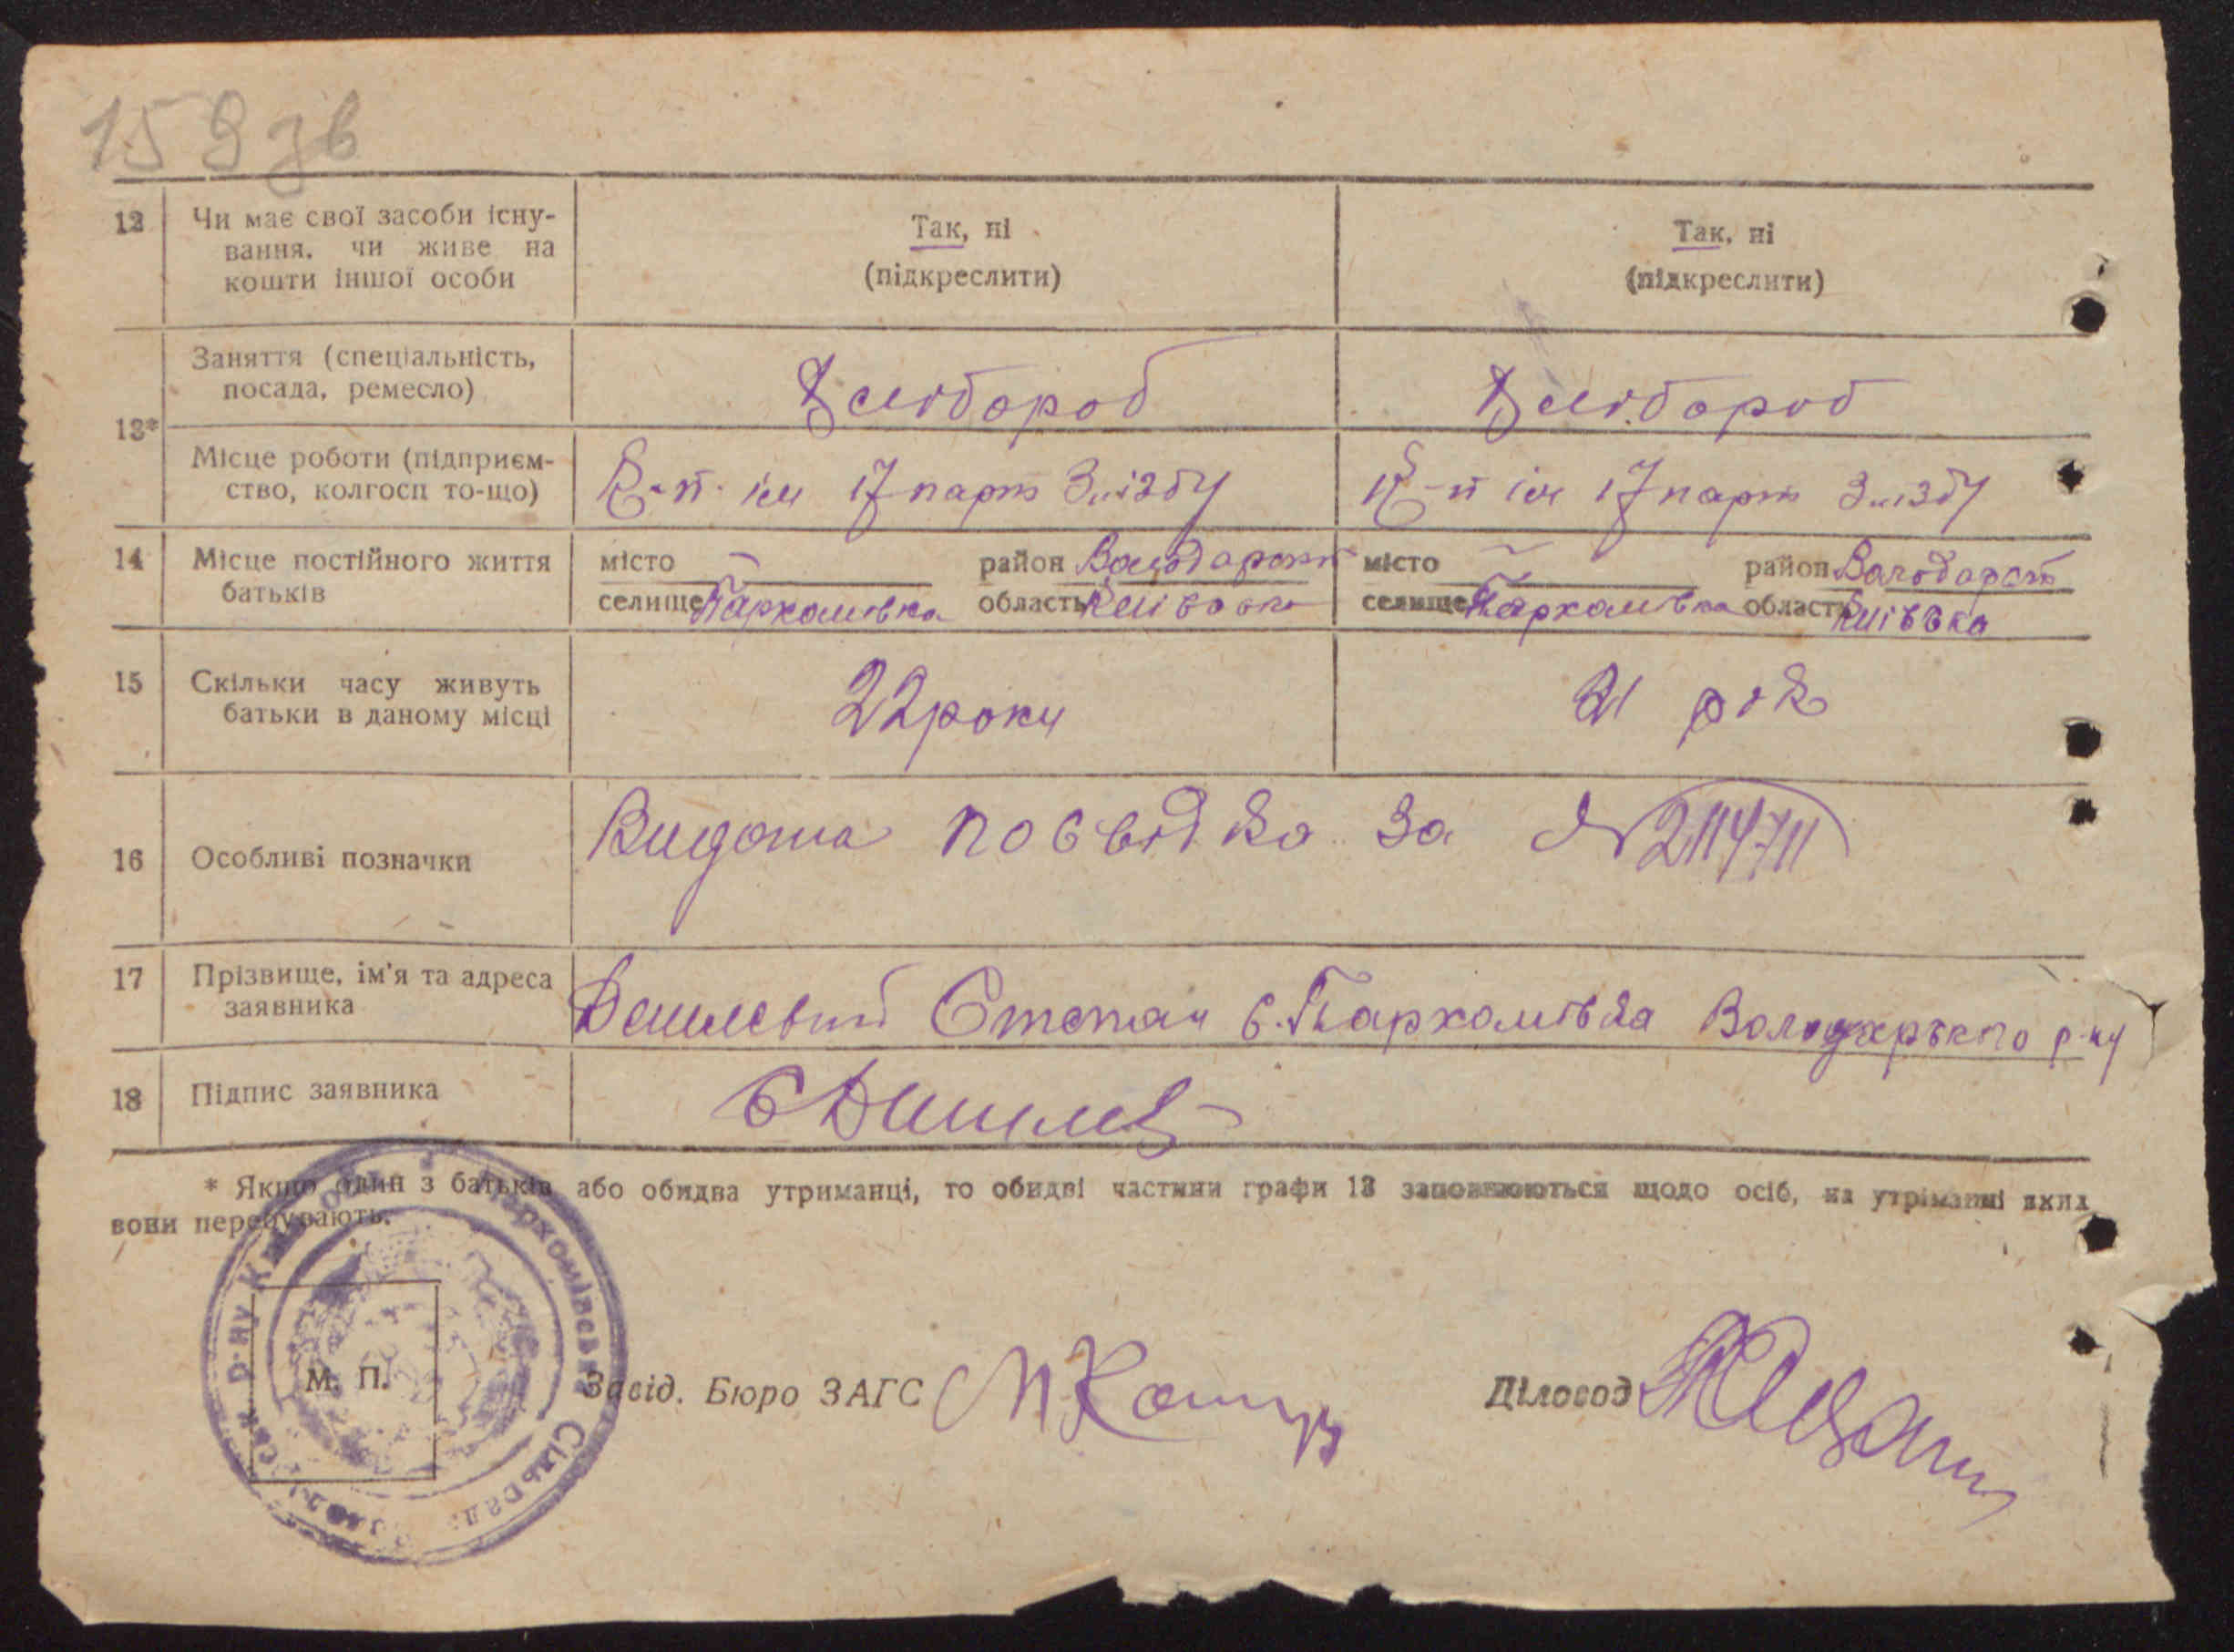 159 зв
12 Чи має свої засоби існу-
вання, чи живе на
кошти іншої особи
Так, ні
(підкреслити)
Так, ні
(підкреслити)
13*
Заняття (спеціальність,
посада, ремесло)
Хлібороб
Хлібороб
Місце роботи (підприєм-
ство, колгосп то-що)
К-п ім 17 парт Зиізду
К-п ім 17 парт Зиізду
14 Місце постійного життя
батьків
місто — район Володарськ
селище Пархомівка область Київська
місто — район Володарськ
селище Пархомівка область Київська
15 Скільки часу живуть
батьки в даному місці
22 роки
21 рік
16 Особливі позначки
Видана посвідка за №
17 Прізвище, ім'я та адреса
заявника
Степан с. Пархомівка Володарського р-ну
18 Підпис заявника
* Якщо один з батьків або обидва утриманці, то обидві частини графи 13 заповнюються щодо осіб, на утріманні яких
вони перебувають.
Пархомівська Сільрада
р-ну
М. П.
Завід. Бюро ЗАГС
Діловод